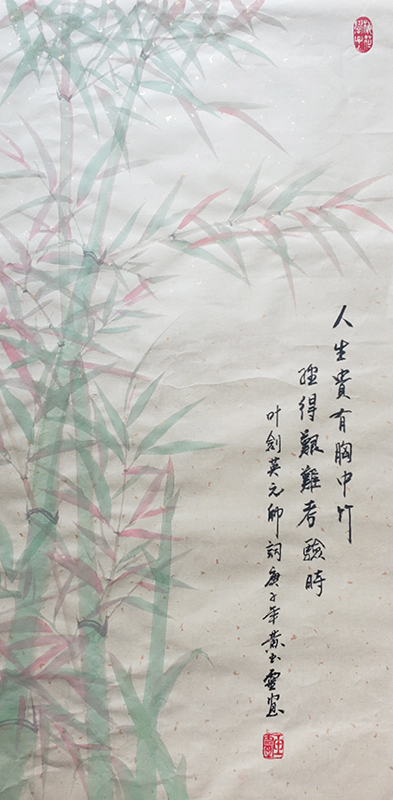 人生貴有胸中竹
經得艱難考驗時
叶剑英元帅詞庚子年黄玉雪㝍